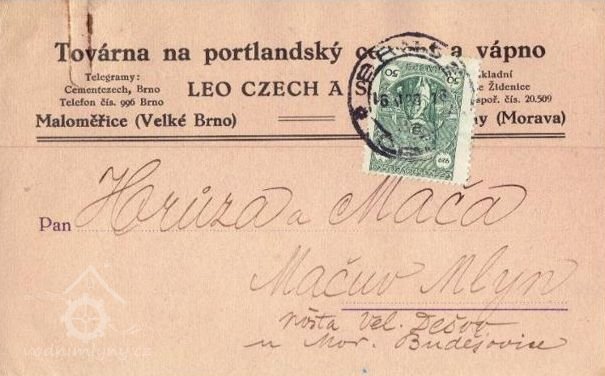 Továrna na portlandský a vápno
Telegramy:
Cementczech, Brno
Telefon čís. 996 Brno
LEO CZECH A
Židenice
spoř. čís. 20.509
Maloměřice (Velké Brno)
(Morava)
50 50
Pan Hrůza a Mača
Mačuv Mlýn
pošta Vel. Dešov
u Mor. Budějovice
vodnimlyny.cz